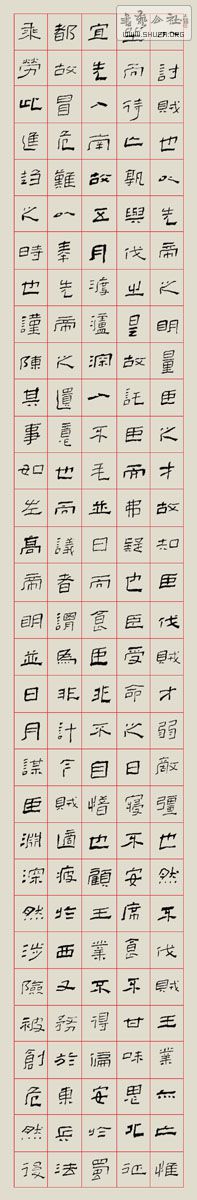 書藝公社
WWW.SHUFA.ORG
討賊也以先帝之明量臣之才故知臣伐賊才弱敵彊也然不伐賊王業亦亡惟
坐而待亡孰與伐之是故託臣而弗疑也臣受命之日寢不安席食不甘味思北征
宜先入南故五月渡瀘深入不毛並日而食臣非不自惜也顧王業不得偏安於蜀
都故冒危難以奉先帝之遺意也而議者謂為非計今賊適疲於西又務於東兵法
乘勞此進趨之時也謹陳其事如左高帝明並日月謀臣淵深然涉險被創危然後